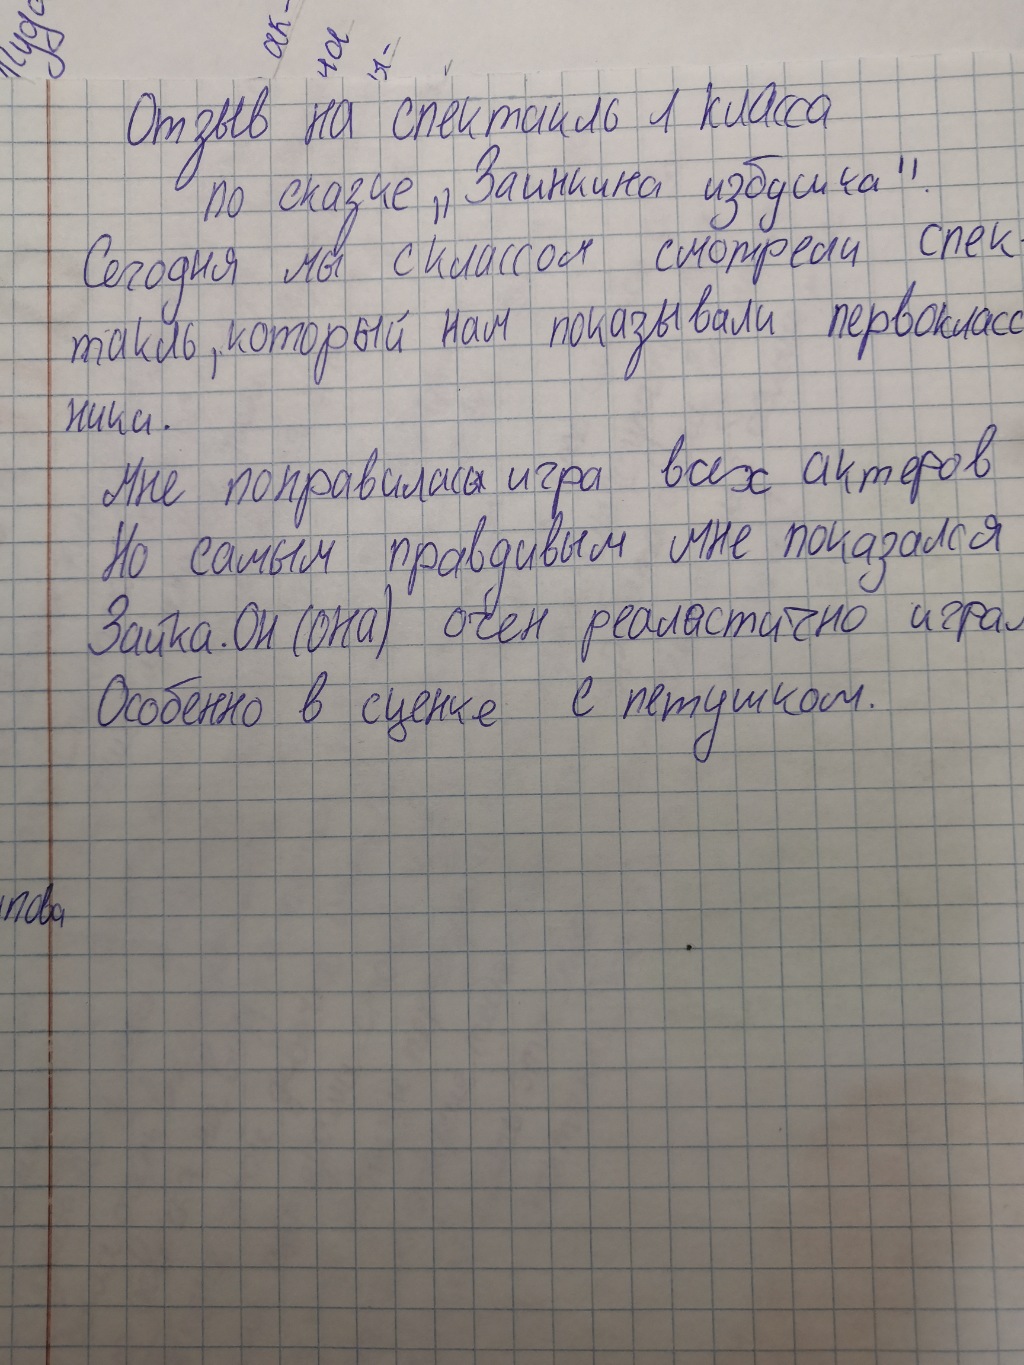 ак-
ча
я-
Отзыв на спектакль 1 класса
по сказке „Заинкина избушка".
Сегодня мы с классом смотрели спек-
такль, который нам показывали первокласс
ники.
Мне понравилась игра всех актеров
Но самым правдивым мне показался
Зайка. Он (она) очен реаластично играл
Особенно в сценке с петушком.
пова